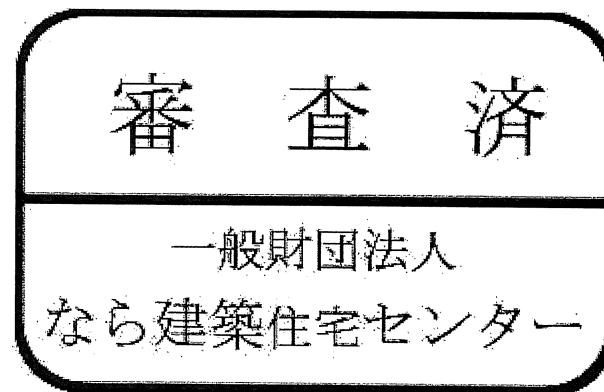 審査済
一般財団法人
なら建築住宅センター